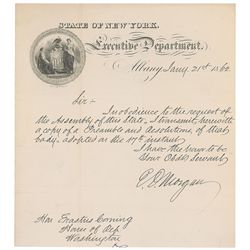 STATE OF NEW YORK.
Executive Department.
Albany Jany. 21st 1862
Sir -
In obedience to the request of
the Assembly of this State, I transmit, herewith
a copy of a Preamble and Resolutions, of that
body, adopted on the 17th instant
I have the honor to be
Your Obdt Servant
E. D. Morgan
Hon Erastus Corning
House of Rep
Washington